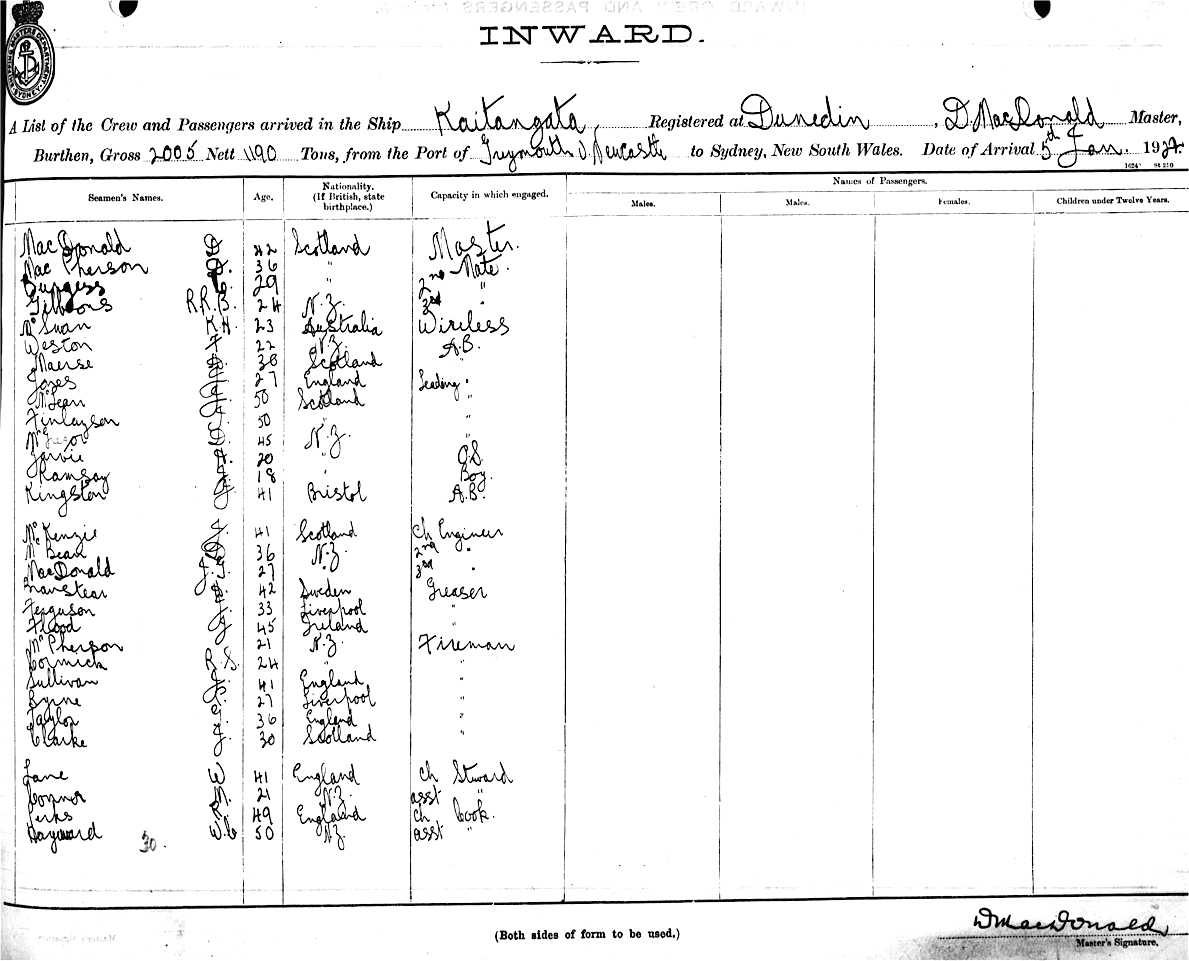 INWARD.
A List of the Crew and Passengers arrived in the Ship Kaitangata, Registered at Dunedin, D. MacDonald Master,
Burthen, Gross 2005 Nett 1190 Tons, from the Port of Greymouth v. Newcastle to Sydney, New South Wales. Date of Arrival 5th Jan. 192
1624* St 210
Seamen's Names. Age. Nationality. (If British, state birthplace.) Capacity in which engaged. Names of Passengers.
Males. Males. Females. Children under Twelve Years.
MacDonald D 42 Scotland Master.
MacPherson D. 36 " Mate.
Burgess 29 " 2nd "
Gibbons R.R.B. 24 N.Z. 3rd "
McSwan K.H. 23 Australia Wireless
Weston F 22 N.Z. A.B.
38 Scotland "
Jones 27 England Leading "
McLean 50 Scotland "
Finlayson 50 "
45 N.Z. "
Jarvie 20 " O.S.
Ramsay 18 " Boy.
Kingston J. 41 Bristol A.B.
McKenzie 41 Scotland Ch Engineer
McBean 36 N.Z. 2nd "
MacDonald 27 " 3rd "
42 Sweden Greaser
Ferguson 33 Liverpool "
Flood J. 45 Ireland "
McPherson 21 N.Z. Fireman
Cormick R.S. 24 " "
Sullivan J. 41 England "
Byrne 27 Liverpool "
Taylor 36 England "
Clarke J. 30 Scotland "
Lane W 41 England Ch Steward
Connor 21 N.Z. asst "
Perks R 49 England Ch Cook.
Hayward 30. W.C 50 N.Z. asst "
(Both sides of form to be used.)
D MacDonald
Master's Signature.